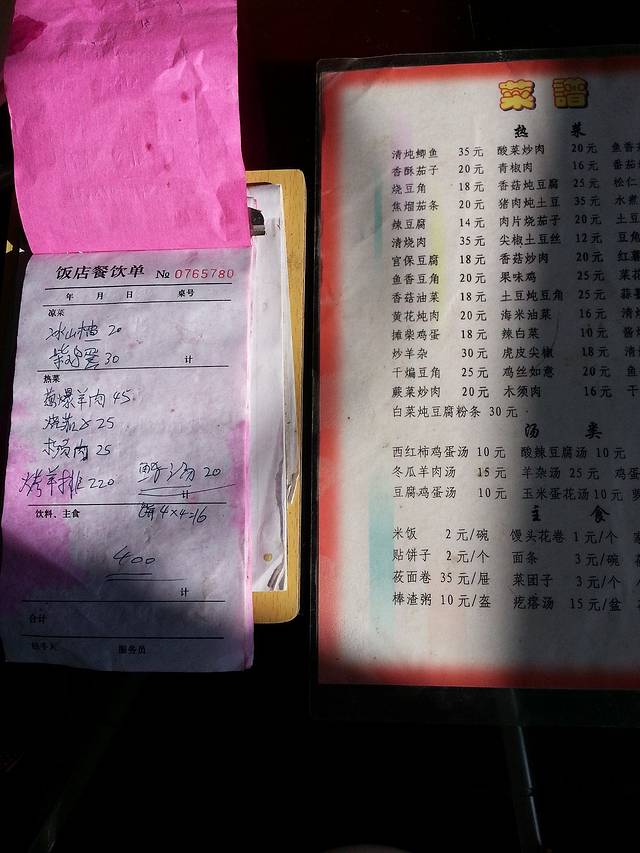 饭店餐饮单 № 0765780
年 月 日 桌号
凉菜
冰山楂 20
30
计
热菜
葱爆羊肉 45
烧茄子 25
木须肉 25
烤羊排 220
汤 20
饮料、主食
饼 4×4=16
400
计
合计
服务员
菜譜
热 菜
清炖鲫鱼 35元 酸菜炒肉 20元 鱼香
香酥茄子 20元 青椒肉 16元 番茄
烧豆角 18元 香菇炖豆腐 25元 松仁
焦熘茄条 20元 猪肉炖土豆 35元 水煮
辣豆腐 14元 肉片烧茄子 20元 土豆
清烧肉 35元 尖椒土豆丝 12元 豆角
官保豆腐 18元 香菇炒肉 20元 红薯
鱼香豆角 20元 果味鸡 25元 菜花
香菇油菜 18元 土豆炖豆角 25元 蒜
黄花炖肉 20元 海米油菜 16元 清
摊柴鸡蛋 18元 辣白菜 10元 酱
炒羊杂 30元 虎皮尖椒 18元 清
干煸豆角 25元 鸡丝如意 20元 鱼
蕨菜炒肉 20元 木须肉 16元 干
白菜炖豆腐粉条 30元
汤 类
西红柿鸡蛋汤 10元 酸辣豆腐汤 10元
冬瓜羊肉汤 15元 羊杂汤 25元 鸡蛋
豆腐鸡蛋汤 10元 玉米蛋花汤 10元 萝
主 食
米饭 2元/碗 馒头花卷 1元/个
贴饼子 2元/个 面条 3元/碗
莜面卷 35元/屉 菜团子 3元/个
棒渣粥 10元/盔 疙瘩汤 15元/盆